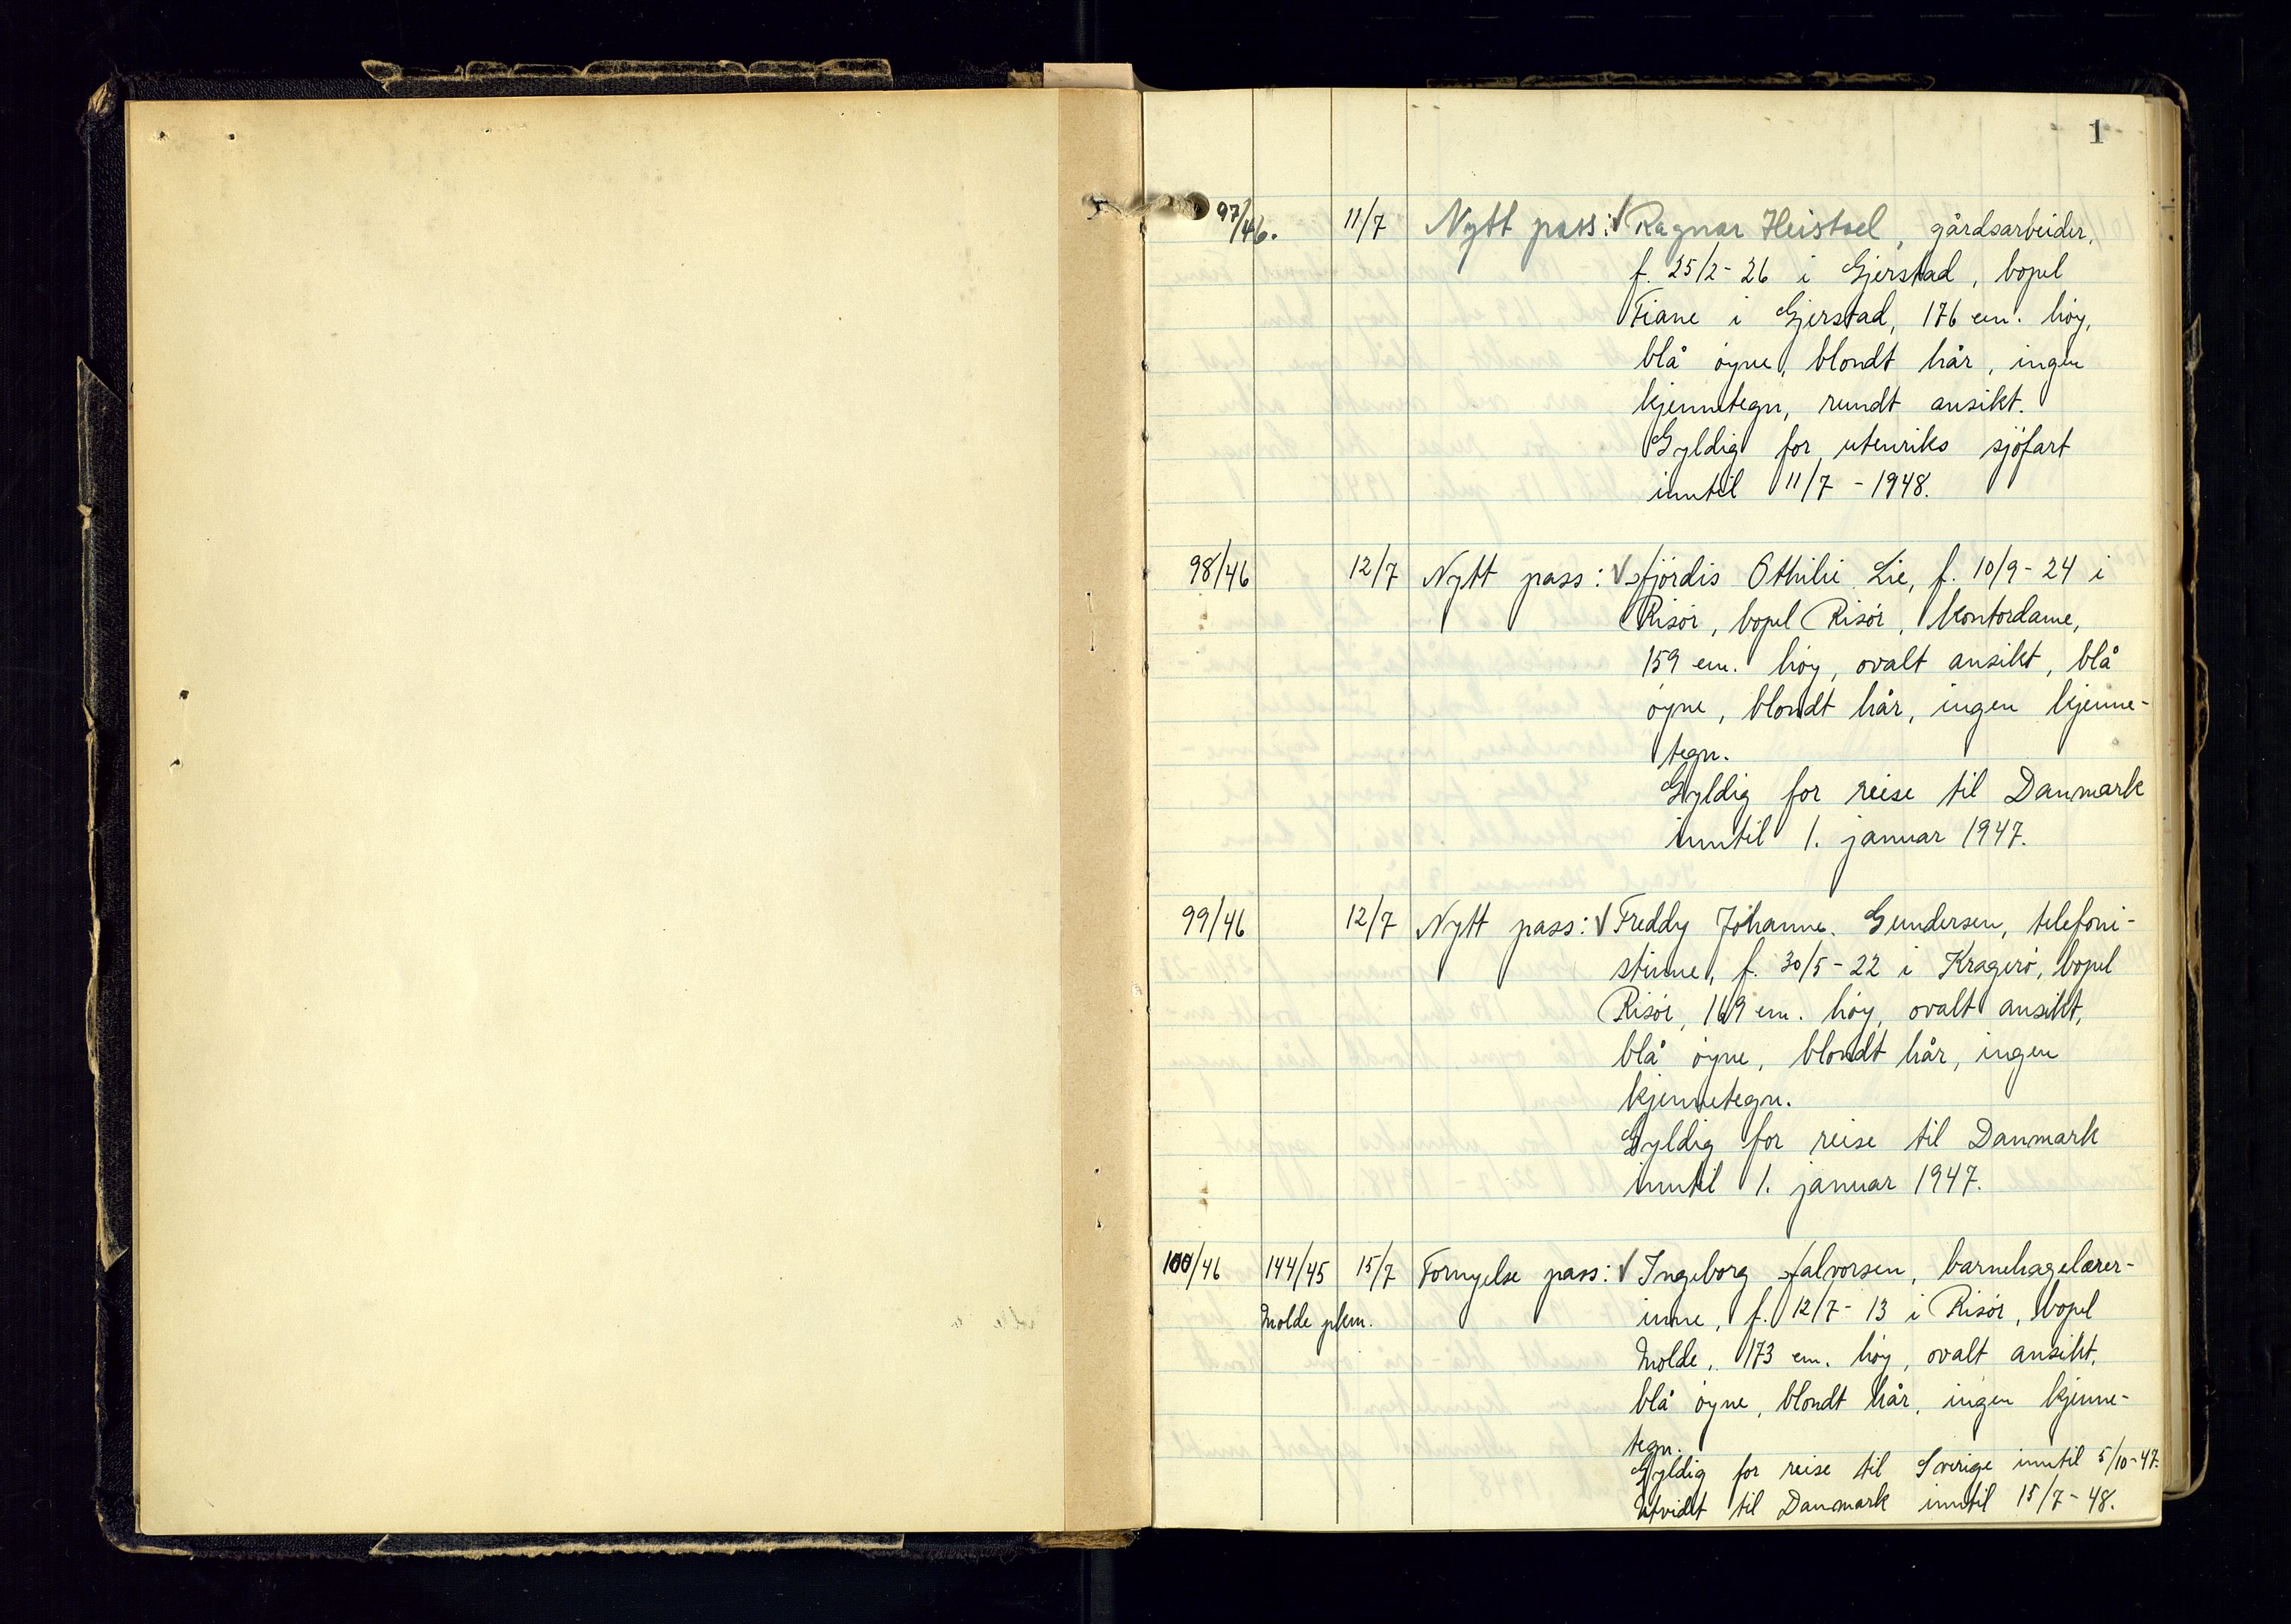 1
97/46. 11/7 Nytt pass: √ Ragnar Heistael, gårdsarbeider,
f. 25/2-26 i Gjerstad, bopel
Fiane i Gjerstad, 176 cm. höy,
blå öyne, blondt hår, ingen
kjennetegn, rundt ansikt.
Gyldig for utenriks sjöfart
inntil 11/7 - 1948.
98/46 12/7 Nytt pass: √ Hjördis Othilie Lie, f. 10/9-24 i
Risör, bopel Risör, kontordame,
159 cm. höy, ovalt ansikt, blå
öyne, blondt hår, ingen kjenne-
tegn.
Gyldig for reise til Danmark
inntil 1. januar 1947.
99/46 12/7 Nytt pass: √ Freddy Johanne Gundersen, telefoni-
stinne, f. 30/5-22 i Kragerö, bopel
Risör, 169 cm. höy, ovalt ansikt,
blå öyne, blondt hår, ingen
kjennetegn.
Gyldig for reise til Danmark
inntil 1. januar 1947.
100/46 144/45 15/7 Fornyelse pass: √ Ingeborg Halvorsen, barnehagelærer-
Molde pkm. inne, f. 12/7-13 i Risör, bopel
Molde, 173 cm. höy, ovalt ansikt,
blå öyne, blondt hår, ingen kjenne-
tegn.
Gyldig for reise til Sverige inntil 5/10-47.
Utvidet til Danmark inntil 15/7-48.